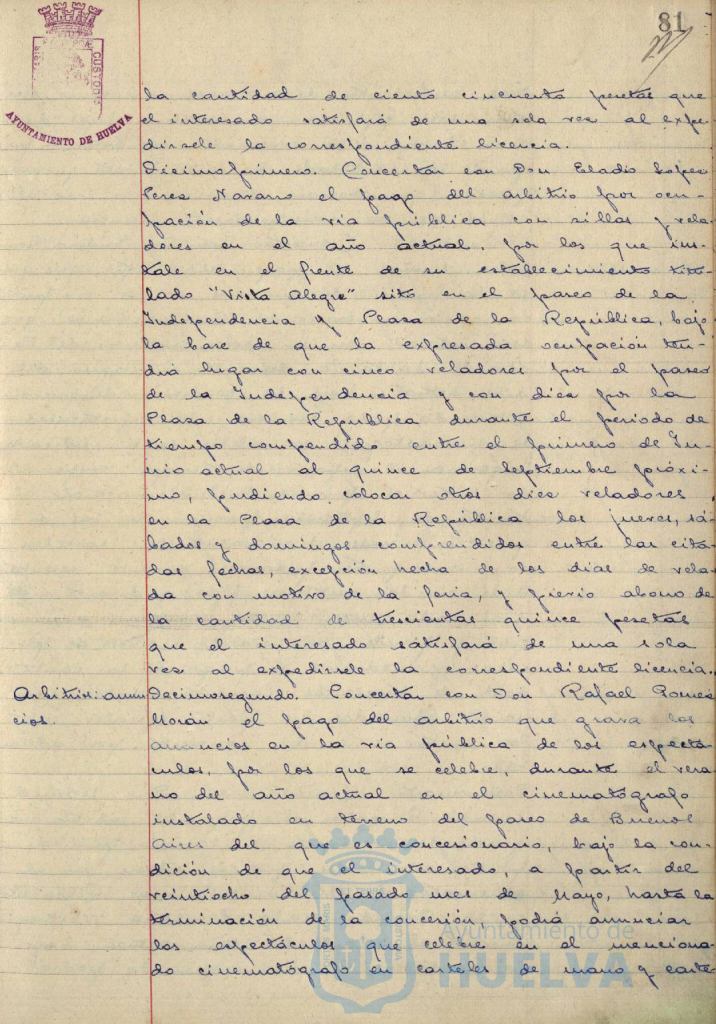 81
AYUNTAMIENTO DE HUELVA
la cantidad de ciento cincuenta pesetas que
el interesado satisfará de una sola vez al expe-
dirsele la correspondiente licencia.
Decimoprimero. Concertar con Don Eladio Lopez
Perez Navarro el pago del arbitrio por ocu-
pación de la via pública con sillas y vela-
dores en el año actual, por los que ins-
tale en el frente de su establecimiento titu-
lado "Vista Alegre" sito en el paseo de la
Independencia y Plaza de la República, bajo
la base de que la expresada ocupación ten-
drá lugar con cinco veladores por el paseo
de la Independencia y con diez por la
Plaza de la Republica durante el periodo de
tiempo compendido entre el primero de Ju-
nio actual al quince de Septiembre próxi-
mo, pudiendo colocar otros diez veladores
en la Plaza de la República los jueves, sá-
bados y domingos comprendidos entre las cita-
das fechas, excepción hecha de los dias de vela-
da con motivo de la feria, y previo abono de
la cantidad de trescientas quince pesetas
que el interesado satisfará de una sola
vez al expedirsele la correspondiente licencia.
Arbitrio: anun-
cios.
Decimosegundo. Concertar con Don Rafael Gomez
Morán el pago del arbitrio que grava los
anuncios en la via pública de los espectá-
culos, por los que se celebre, durante el vera-
no del año actual en el cinematógrafo
instalado en terreno del paseo de Buenos
Aires del que es concesionario, bajo la con-
dición de que el interesado, a partir del
veintiocho del pasado mes de Mayo, hasta la
terminación de la concesión, podrá anunciar
los espectáculos que celebre en el menciona-
do cinematógrafo en carteles de mano y carte-
Ayuntamiento de
HUELVA